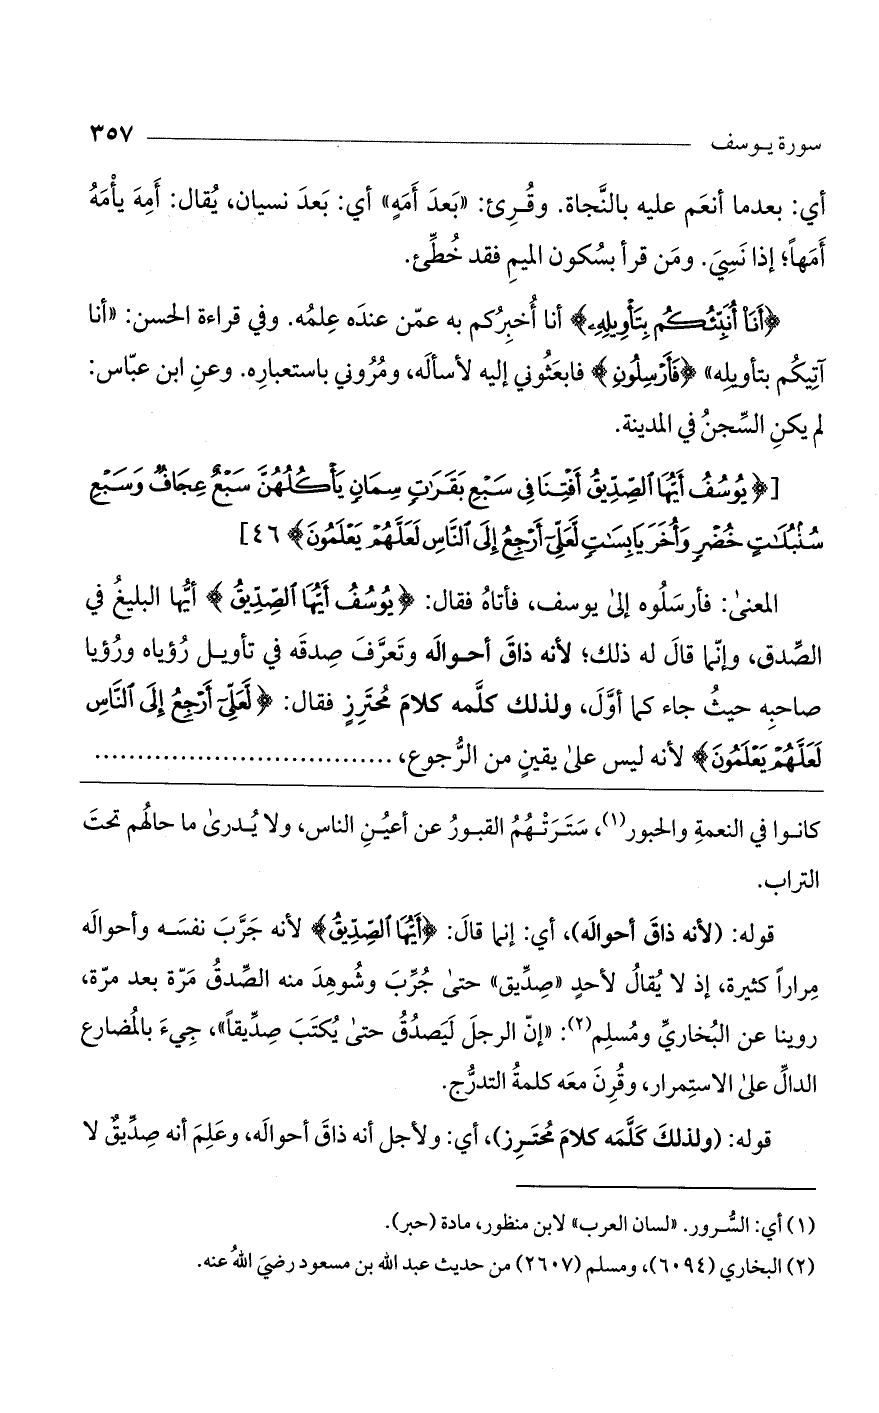 سورة يـوسف ٣٥٧
أي: بعدما أنعَم عليه بالنَّجاة. وقُـرِئ: «بَعدَ أَمَهٍ» أي: بَعدَ نسيان، يُقال: أَمِهَ يأْمَهُ
أَمَهاً؛ إذا نَسِيَ. ومَن قرأ بسُكون الميمِ فقد خُطِّئ.
﴿أَنَا۠ أُنَبِّئُكُم بِتَأْوِيلِهِۦ﴾ أنا أُخبِرُكم به عمّن عندَه عِلمُه. وفي قراءة الحسن: «أنا
آتِيكُم بتأويلِه» ﴿فَأَرْسِلُونِ﴾ فابعَثُوني إليه لأسألَه، ومُرُوني باستعبارِه. وعنِ ابن عبّاس:
لم يكنِ السِّجنُ في المدينة.
[﴿يُوسُفُ أَيُّهَا ٱلصِّدِّيقُ أَفْتِنَا فِى سَبْعِ بَقَرَٰتٍ سِمَانٍ يَأْكُلُهُنَّ سَبْعٌ عِجَافٌ وَسَبْعِ
سُنۢبُلَٰتٍ خُضْرٍ وَأُخَرَ يَابِسَٰتٍ لَّعَلِّىٓ أَرْجِعُ إِلَى ٱلنَّاسِ لَعَلَّهُمْ يَعْلَمُونَ﴾ ٤٦]
المعنىٰ: فأرسَلُوه إلىٰ يوسف، فأتاهُ فقال: ﴿يُوسُفُ أَيُّهَا ٱلصِّدِّيقُ﴾ أيُّها البليغُ في
الصِّدق، وإنّما قالَ له ذلك؛ لأنه ذاقَ أحـوالَه وتَعرَّفَ صِدقَه في تأويـل رُؤياه ورُؤيا
صاحبِه حيثُ جاء كما أوَّلَ، ولذلك كلَّمه كلامَ مُحتَرِزٍ فقال: ﴿لَّعَلِّىٓ أَرْجِعُ إِلَى ٱلنَّاسِ
لَعَلَّهُمْ يَعْلَمُونَ﴾ لأنه ليس علىٰ يقينٍ من الرُّجوع، ...................................
كانـوا في النعمةِ والحبور(١)، سَتَـرَتْـهُمُ القبـورُ عن أعيُـنِ الناس، ولا يُـدرىٰ ما حالُهم تحتَ
التراب.
قوله: (لأنه ذاقَ أحوالَه)، أي: إنما قالَ: ﴿أَيُّهَا ٱلصِّدِّيقُ﴾ لأنه جَرَّبَ نفسَـه وأحوالَه
مِراراً كثيرة، إذ لا يُقالُ لأحدٍ «صِدِّيق» حتىٰ جُرِّبَ وشُوهِدَ منه الصِّدقُ مَرّة بعد مرّة،
روينا عن البُخاريِّ ومُسلِم(٢): «إنّ الرجلَ لَيَصدُقُ حتىٰ يُكتَبَ صِدِّيقاً»، جِيءَ بالمُضارع
الدالِّ علىٰ الاستِمرار، وقُرِنَ معَه كلمةُ التدرُّج.
قوله: (ولذلكَ كَلَّمَه كلامَ مُحتَـرِز)، أي: ولأجل أنه ذاقَ أحوالَه، وعَلِمَ أنه صِدِّيقٌ لا
(١) أي: السُّـرور. «لسان العرب» لابن منظور، مادة (حبر).
(٢) البخاري (٦٠٩٤)، ومسلم (٢٦٠٧) من حديث عبد الله بن مسعود رضيَ اللهُ عنه.